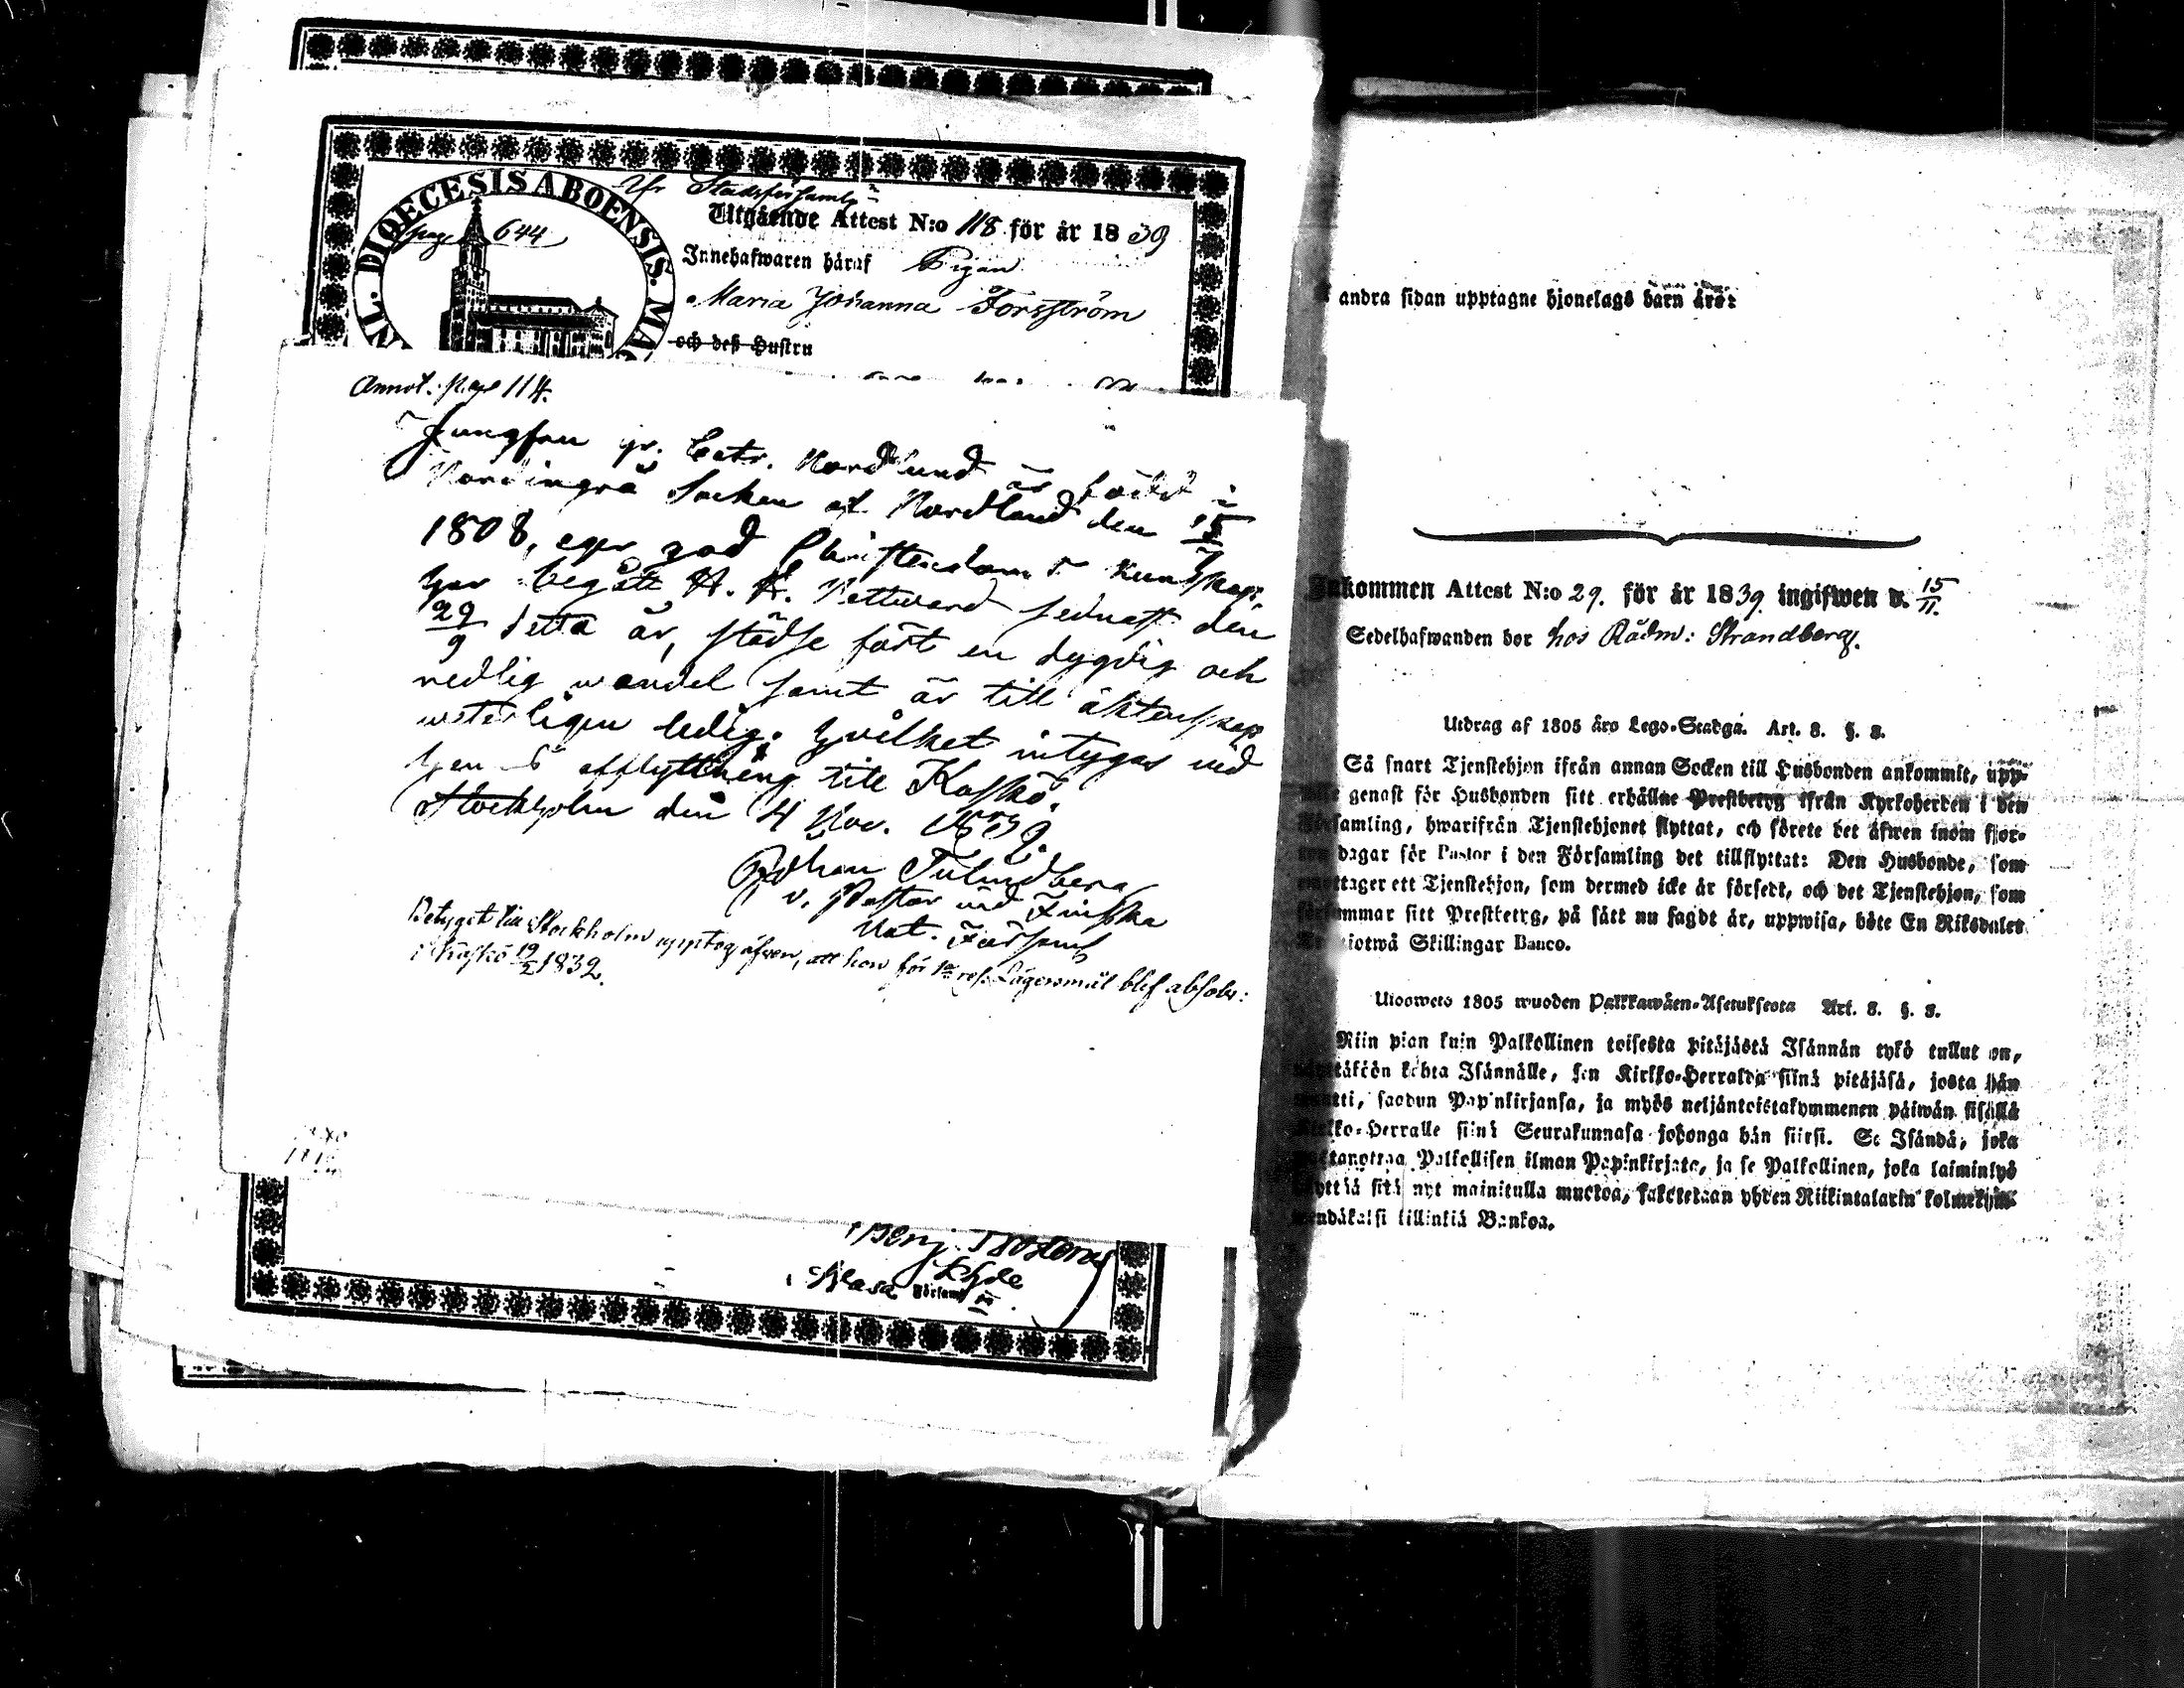 Ur Stadsförsaml:
Utgående Attest N:o 118 för år 1839
DIOECESIS ABOENSIS. MAG
pag 644
Innehafwaren häraf Pigan
Maria Johanna Forsström
och deß Hustru
Annot. pag 114.
Jungfru gr. Catr. Nordlund är född i
Nordingrå Socken af Nordland den 15/7
1808, eger god Christendoms kunskap,
har begått H. H. Nattvard sednast den
29/9 detta år, städse fört en dygdig och
redlig wandel samt är till äktenskap
weterligen ledig; hvilket intygas vid
hennes afflyttning till Kaskö.
Stockholm den 4 Nov. 1839.
Johan Tulindberg
v. Pastor vid Finska
Nat. Församl
Betyget till Stockholm upptog äfven, att hon för 1a res. Lägersmål blef absolv:
i Kaskö 19/2 1832.
Wasa Församl
andra sidan upptagne hjonelags barn äro:
Inkommen Attest N:o 29. för år 1839 ingifwen d. 15/11.
Sedelhafwanden bor hos Rådm: Strandberg.
Utdrag af 1805 års Lego-Stadga. Art. 8. §. 8.
Så snart Tjenstehjon ifrån annan Socken till Husbonden ankommit, upp-
genast för Husbonden sitt erhållne Prestbetyg ifrån Kyrkoherden i den
Församling, hwarifrån Tjenstehjonet flyttat, och förete det äfwen inom fjor-
ton dagar för Pastor i den Församling det tillflyttat: Den Husbonde, som
emottager ett Tjenstehjon, som dermed icke är försedt, och det Tjenstehjon, som
försummar sitt Prestbetyg, på sätt nu sagdt är, uppwisa, böte En Riksdaler
Trettiotwå Skillingar Banco.
Ulosweto 1805 wuoden Palkkawäen-Asetuksesta Art. 8. §. 8.
Niin pian kuin Palkollinen toisesta pitäjästä Isännän tykö tullut on,
näyttäköön kohta Isännälle, sen Kirkko-Herralda siinä pitäjäsä, josta hän
muutti, saadun Papinkirjansa, ja myös neljäntoistakymmenen päiwän sisällä
Kirkko-Herralle siinä Seurakunnasa johonga hän siirsi. Se Isändä, joka
wastanottaa Palkollisen ilman Papinkirjata, ja se Palkollinen, joka laiminlyö
näyttää sitä nyt mainitulla muotoa, sakotetaan yhden Riikintalarin kolmekym-
mendäkaksi killinkiä Bankoa.